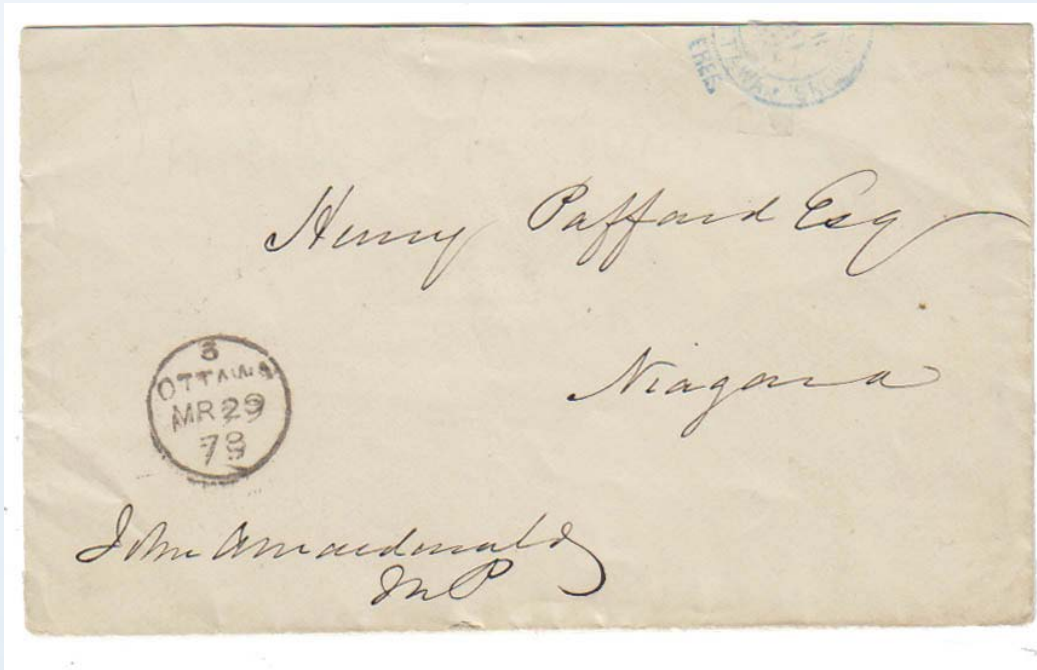 FREE
Henry Paffard Esq
Niagara
3
OTTAWA
MR 29
78
John A Macdonald
MP